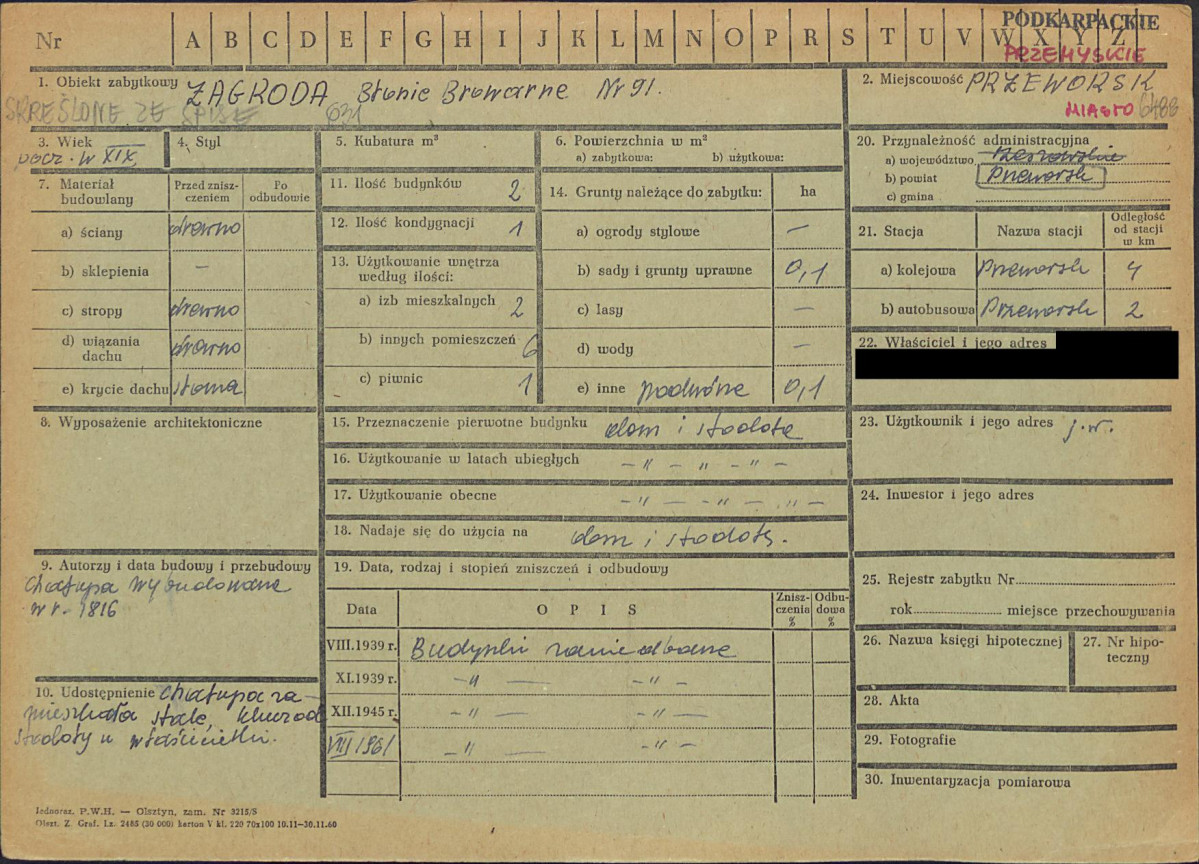 Nr A B C D E F G H I J K L M N O P R S T U V W X Y Z
PODKARPACKIE
PRZEMYSKIE
1. Obiekt zabytkowy ZAGRODA Błonie Browarne Nr 91.
SKREŚLONE ZE SPISU 631
2. Miejscowość PRZEWORSK
MIASTO 6488
3. Wiek
pocz. w XIX,
4. Styl
5. Kubatura m³
6. Powierzchnia w m²
a) zabytkowa: b) użytkowa:
7. Materiał budowlany
Przed zniszczeniem
Po odbudowie
a) ściany drewno
b) sklepienia —
c) stropy drewno
d) wiązania dachu drewno
e) krycie dachu słoma
8. Wyposażenie architektoniczne
9. Autorzy i data budowy i przebudowy
Chałupa wybudowana
w r. 1816
10. Udostępnienie Chałupa za-
mieszkała stale, klucz od
stodoły u właścicielki.
11. Ilość budynków 2
12. Ilość kondygnacji 1
13. Użytkowanie wnętrza
według ilości:
a) izb mieszkalnych 2
b) innych pomieszczeń 6
c) piwnic 1
14. Grunty należące do zabytku: ha
a) ogrody stylowe —
b) sady i grunty uprawne 0,1
c) lasy —
d) wody —
e) inne podwórze 0,1
15. Przeznaczenie pierwotne budynku dom i stodoła
16. Użytkowanie w latach ubiegłych – " – " – " –
17. Użytkowanie obecne – " — – " – " –
18. Nadaje się do użycia na dom i stodołę.
19. Data, rodzaj i stopień zniszczeń i odbudowy
Data OPIS Zniszczenia % Odbudowa %
VIII.1939 r. Budynki zaniedbane
XI.1939 r. – " — – " –
XII.1945 r. – " — – " –
VIII 1961 – " — – " –
20. Przynależność administracyjna
a) województwo Rzeszowskie
b) powiat Przeworsk
c) gmina
21. Stacja Nazwa stacji Odległość od stacji w km
a) kolejowa Przeworsk 4
b) autobusowa Przeworsk 2
22. Właściciel i jego adres
23. Użytkownik i jego adres j.w.
24. Inwestor i jego adres
25. Rejestr zabytku Nr
rok miejsce przechowywania
26. Nazwa księgi hipotecznej
27. Nr hipoteczny
28. Akta
29. Fotografie
30. Inwentaryzacja pomiarowa
Jednoraz. P.W.H. — Olsztyn, zam. Nr 3215/S
Olszt. Z. Graf. Lz. 2485 (30 000) karton V kl. 220 70x100 10.11—30.11.60